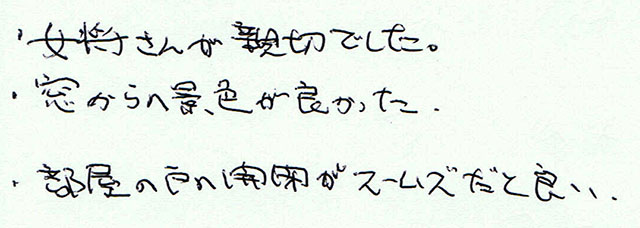 ・女将さんが親切でした。
・窓からの景色が良かった.
・部屋の戸の開閉がスームズだと良い.